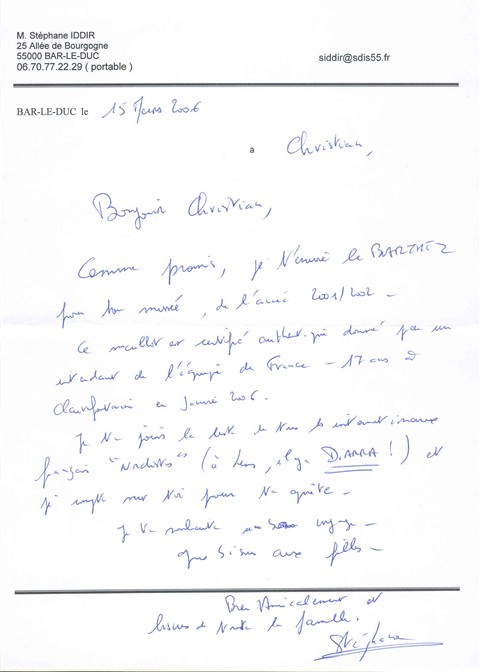 M. Stéphane IDDIR
25 Allée de Bourgogne
55000 BAR-LE-DUC
06.70.77.22.29 ( portable )
siddir@sdis55.fr
BAR-LE-DUC le 15 Mars 2006
à Christian,
Bonjour Christian,
Comme promis, je t'envoie le BARTHEZ
pour ton musée, de l'année 2001/2002 -
Ce maillot est certifié authentique donné par un
intendant de l'équipe de France - 17 ans à
Clairefontaine en Janvier 2006.
Je te joins la liste de tous les internationaux
français "Nordistes" (à Lens, il y a DIARRA !) et
je compte sur toi pour ta quête -
Je te souhaite un bon voyage -
Gros bisous aux filles -
Bien Amicalement et
bisous de toute la famille.
Stéphane